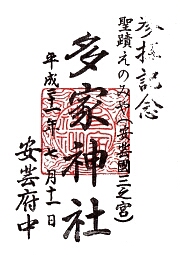 参拝記念
聖蹟えのみや(安芸國三之宮)
多家神社
平成二十一年七月十一日
安芸府中